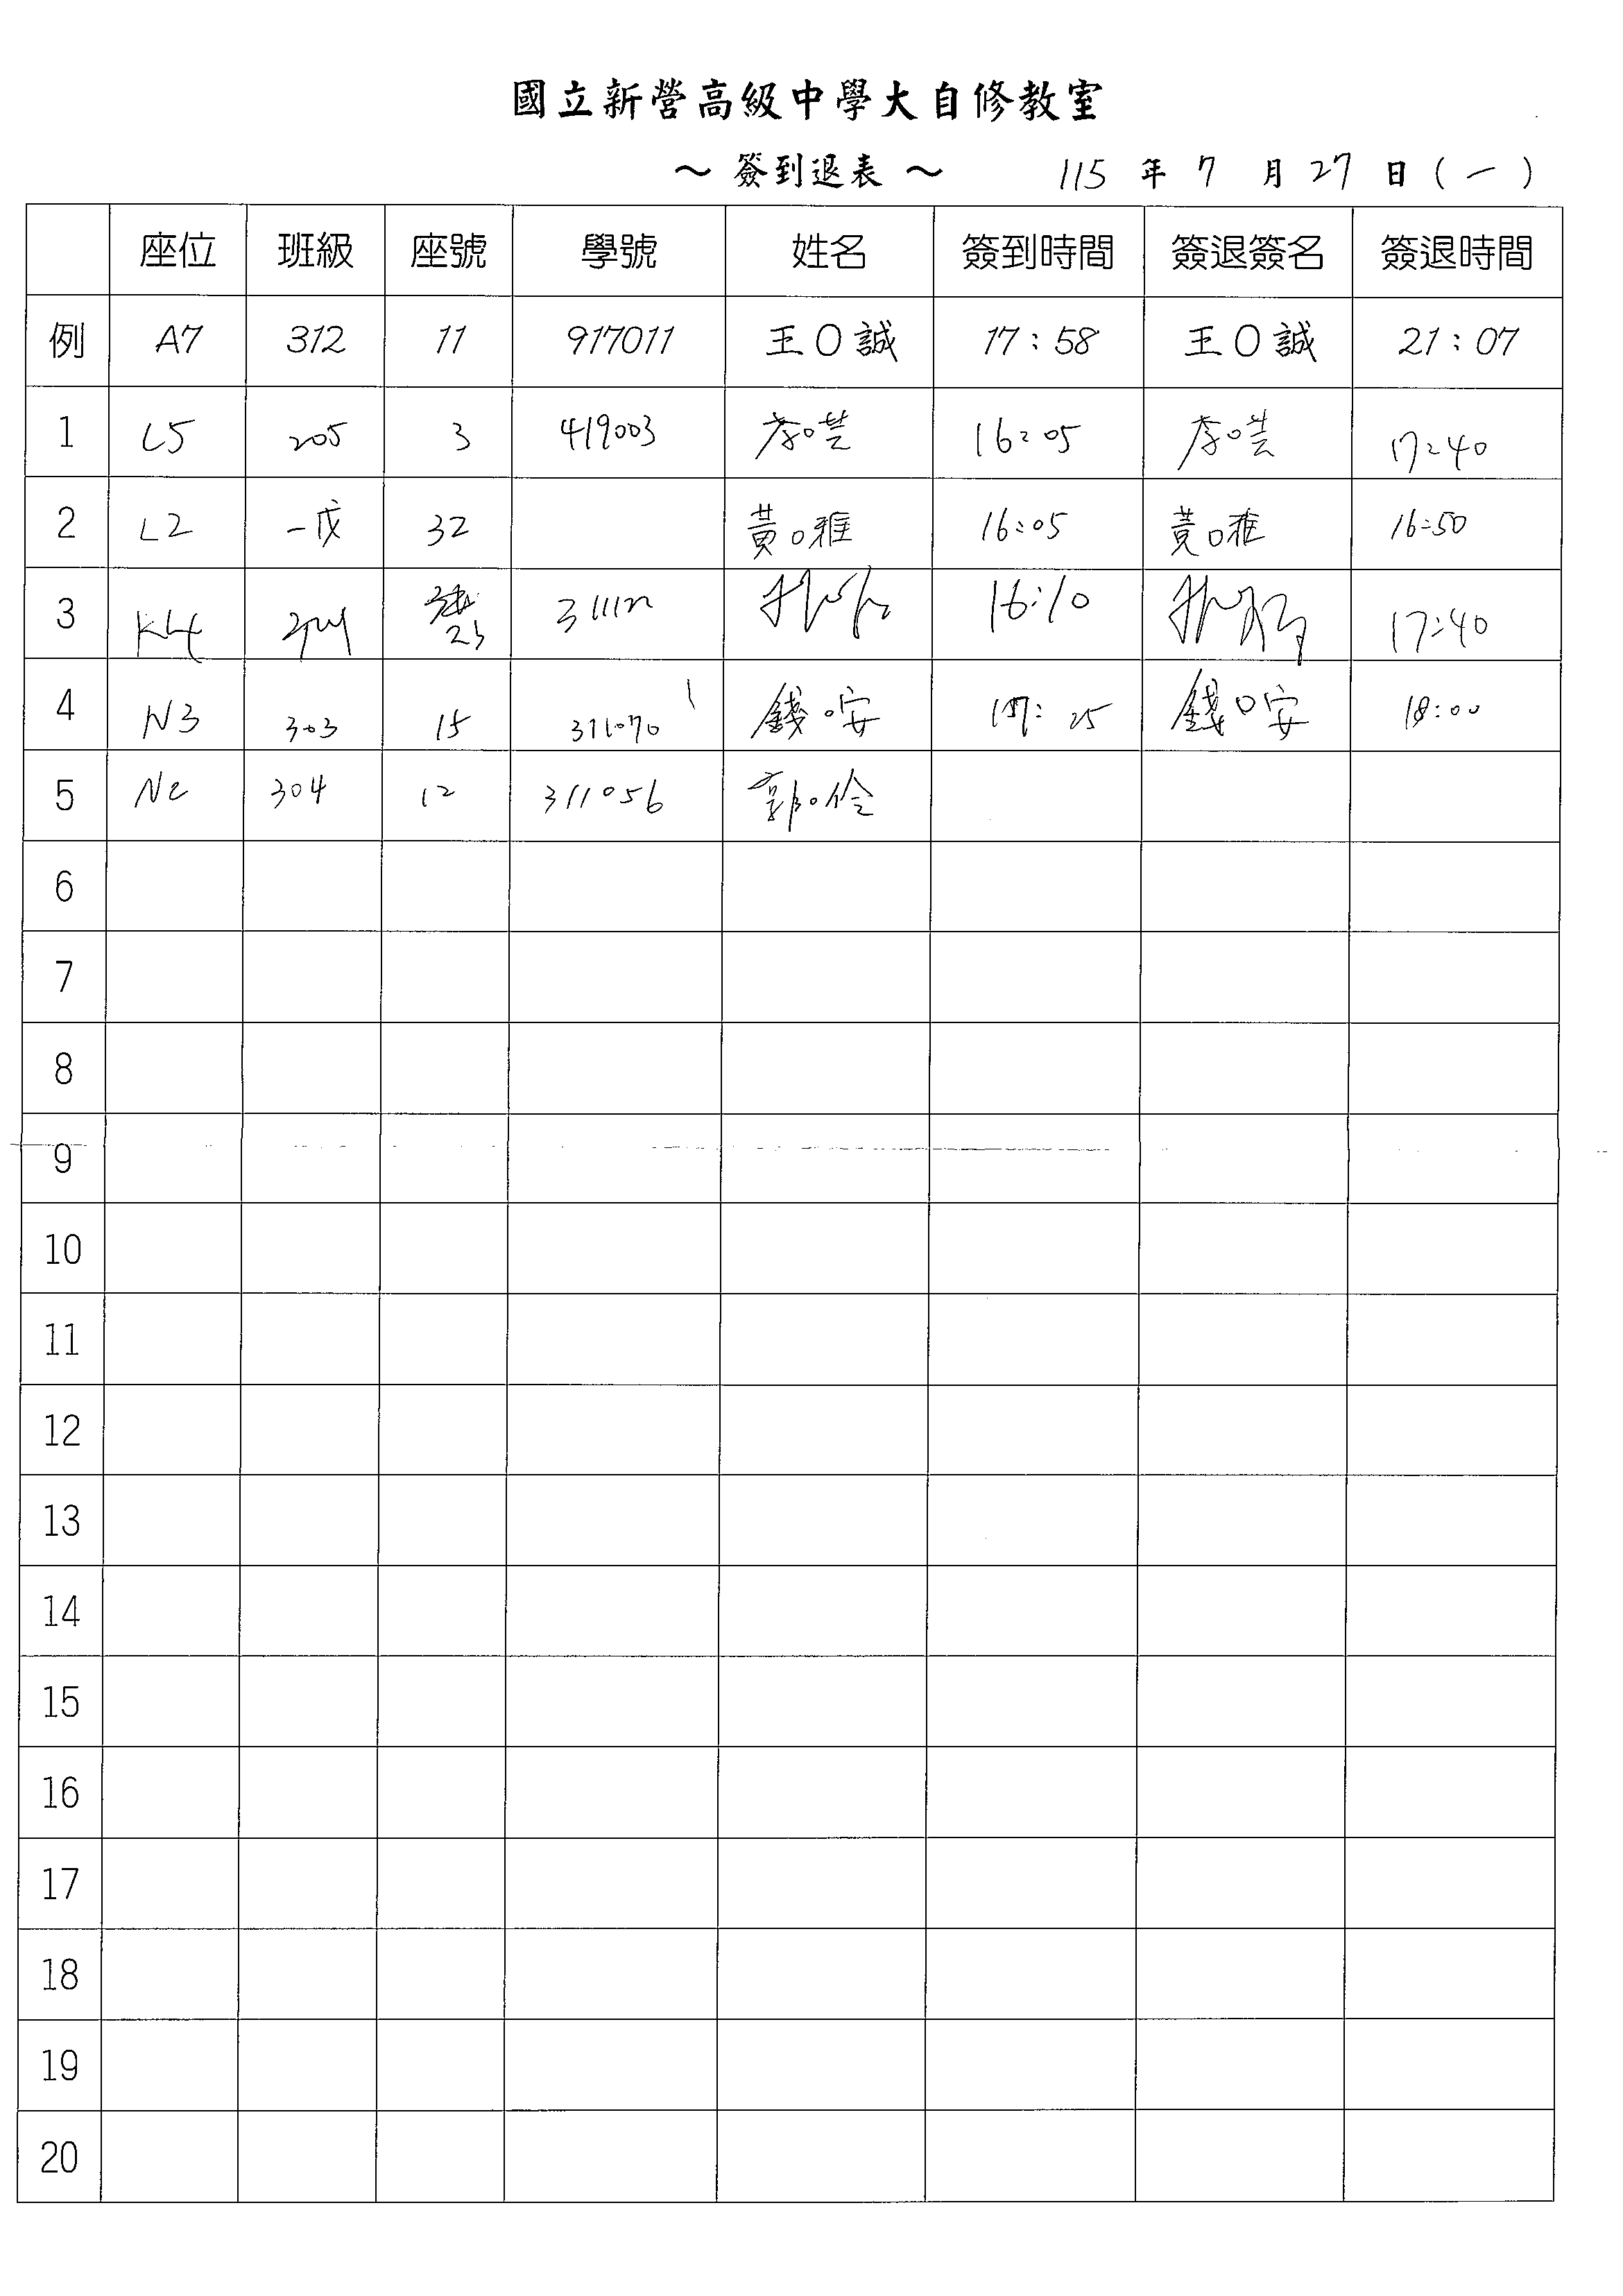 國立新營高級中學大自修教室
～ 簽到退表 ～ 115 年 7 月 27 日 (一)
座位 班級 座號 學號 姓名 簽到時間 簽退簽名 簽退時間
例 A7 312 11 917011 王○誠 17:58 王○誠 21:07
1 L5 205 3 419003 李○芸 16:05 李○芸 17:40
2 L2 一戊 32 黃○雅 16:05 黃○雅 16:50
3 K4 23 16:10 17:40
4 N3 303 15 311070 錢○安 17:25 錢○安 18:00
5 N2 304 12 311056 郭○伶
6
7
8
9
10
11
12
13
14
15
16
17
18
19
20